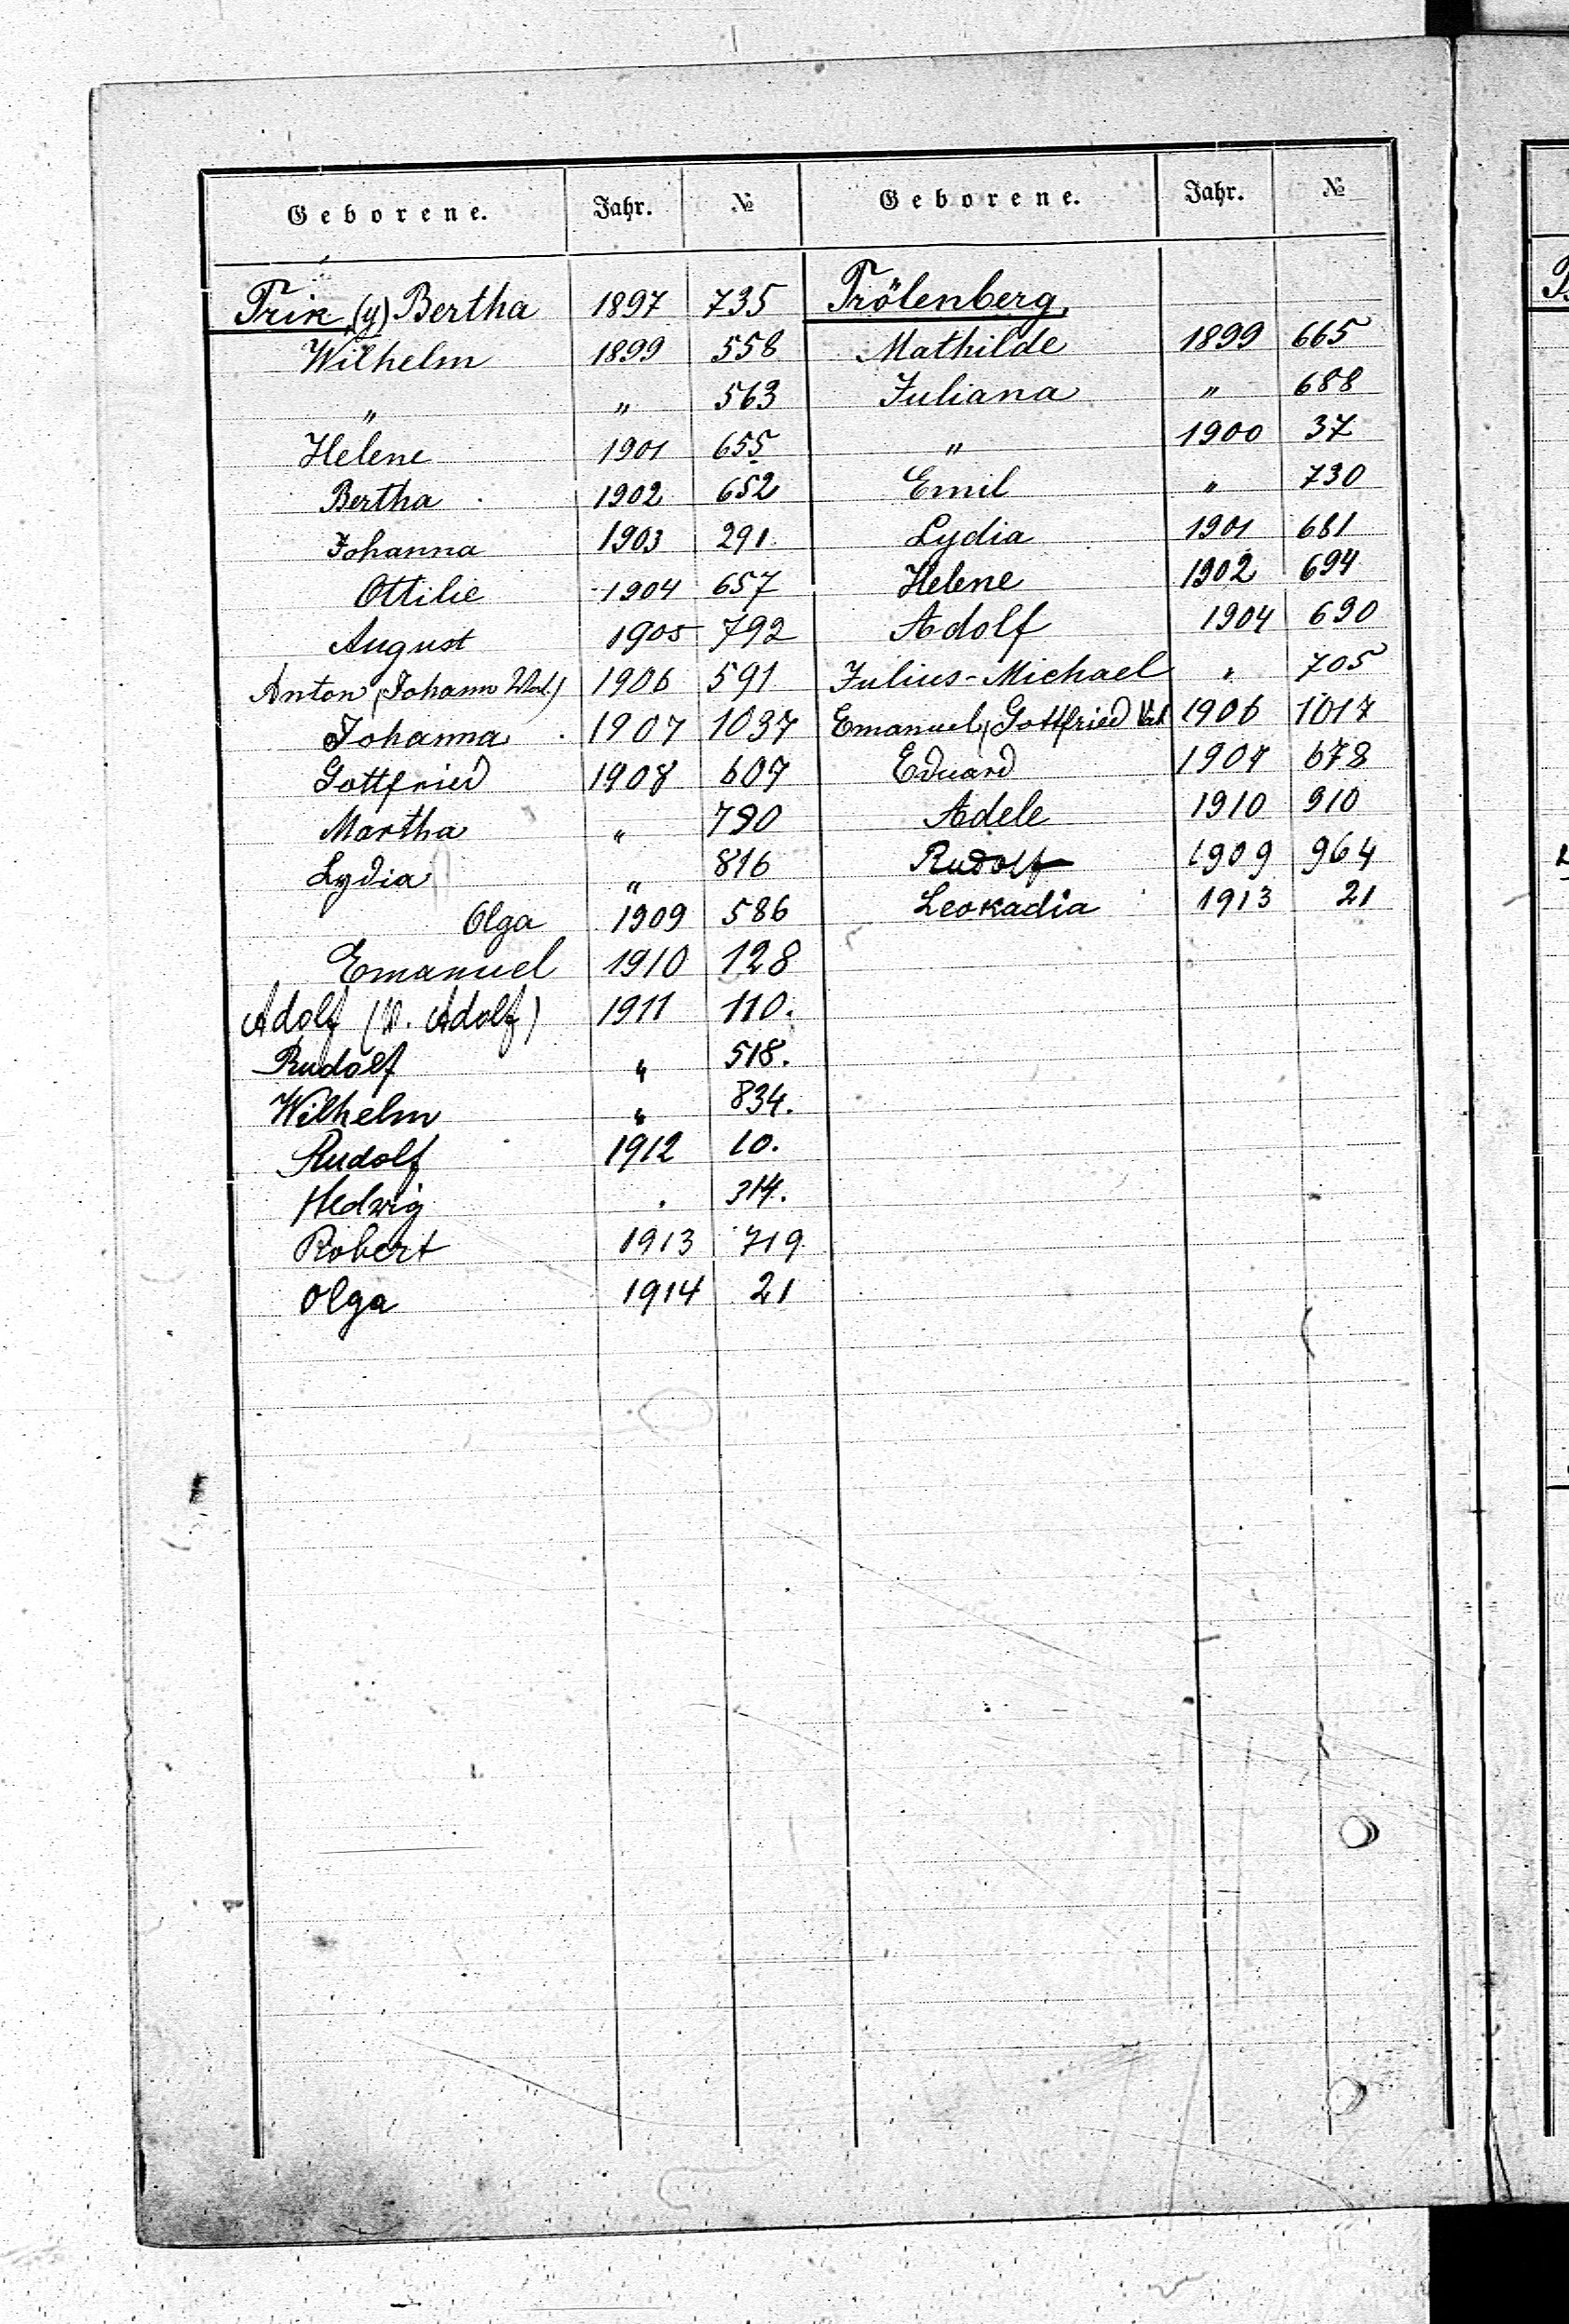 Geborene. Jahr. № Geborene. Jahr. №
Trik (y) Bertha 1897 735
Wilhelm 1899 558
" " 563
Helene 1901 655
Bertha 1902 652
Johanna 1903 291
Ottilie 1904 657
August 1905 792
Anton (Johann Wal.) 1906 591
Johanna 1907 1037
Gottfried 1908 607
Martha " 790
Lydia " 816
Olga 1909 586
Emanuel 1910 128
Adolf (V. Adolf) 1911 110.
Rudolf " 518.
Wilhelm " 834.
Rudolf 1912 10.
Hedwig . 314.
Robert 1913 719
Olga 1914 21
Trölenberg,
Mathilde 1899 665
Juliana " 688
" 1900 37
Emil " 730
Lydia 1901 681
Helene 1902 694
Adolf 1904 690
Julius-Michael " 705
Emanuel, Gottfried 1906 1017
Eduard 1907 678
Adele 1910 910
Rudolf 1909 964
Leokadia 1913 21